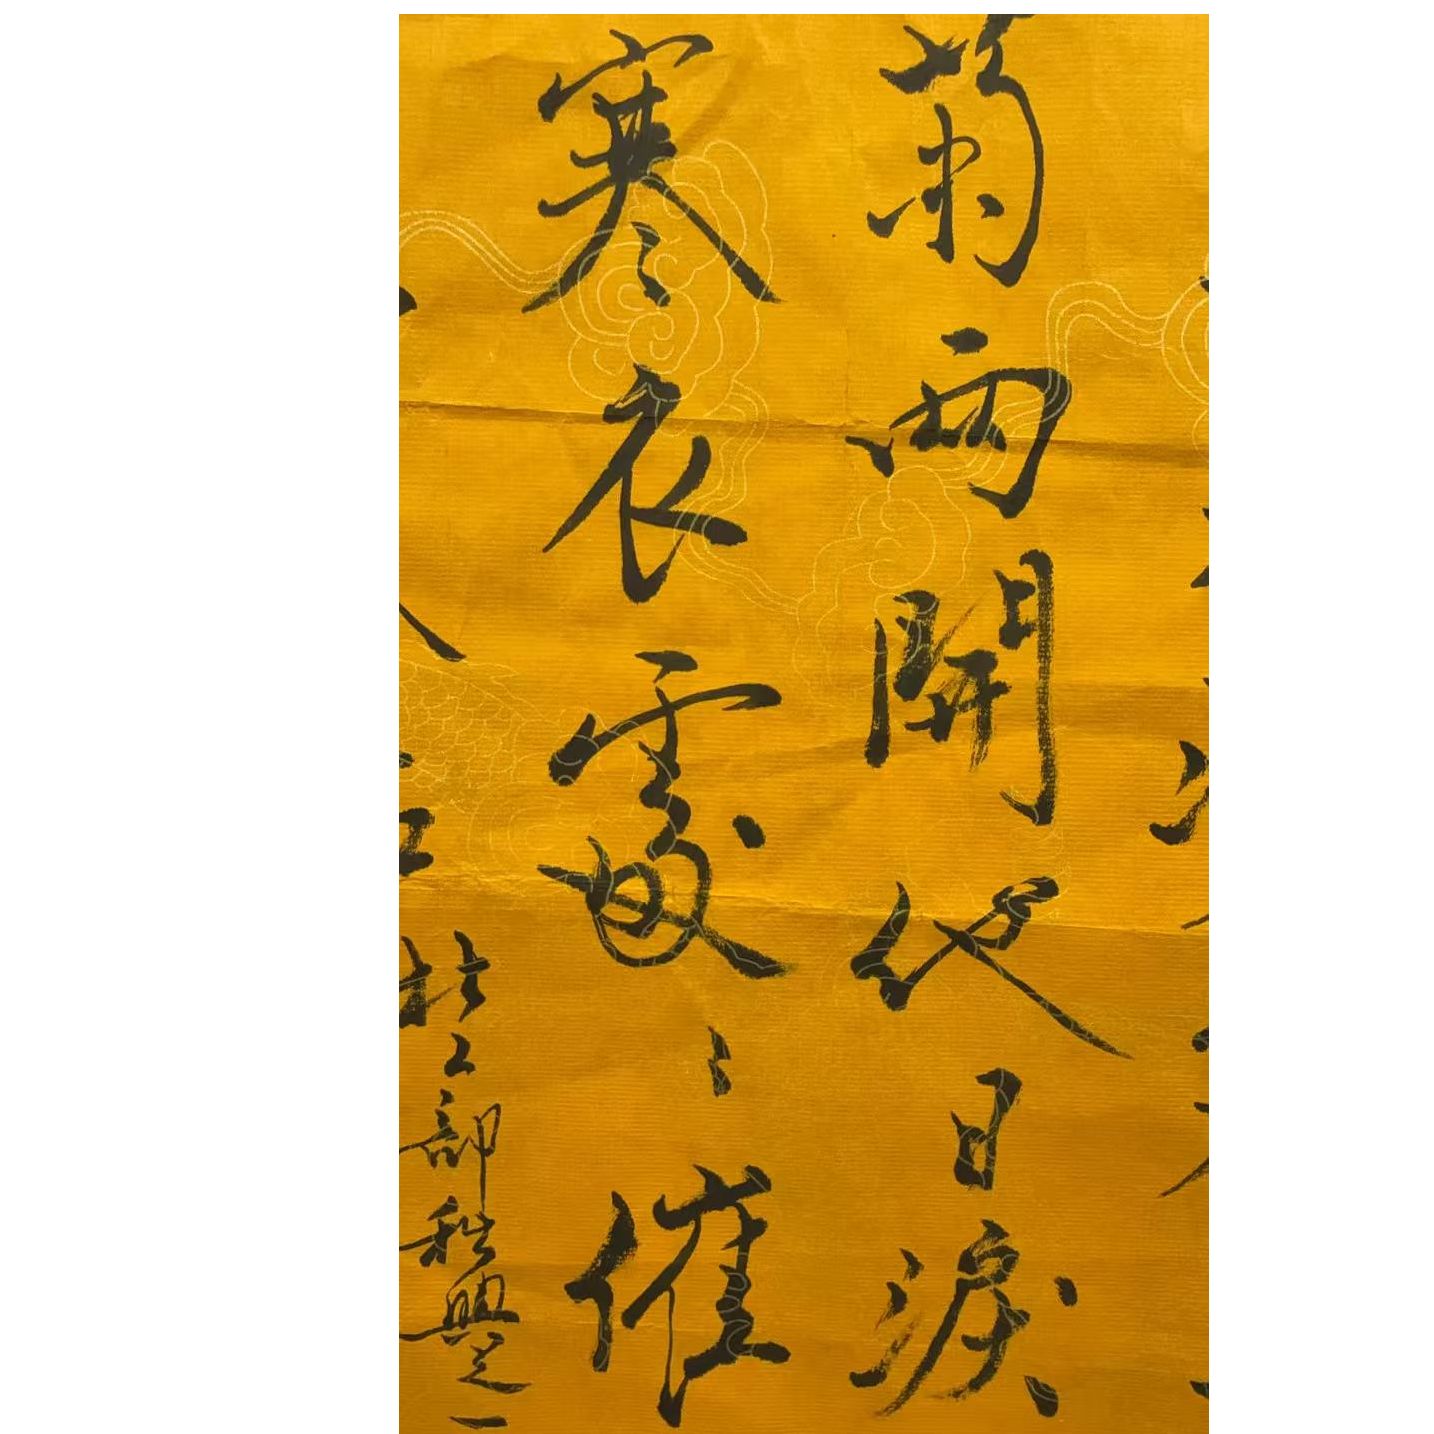 菊兩開他日淚
寒衣處々催
杜工部秋興之一